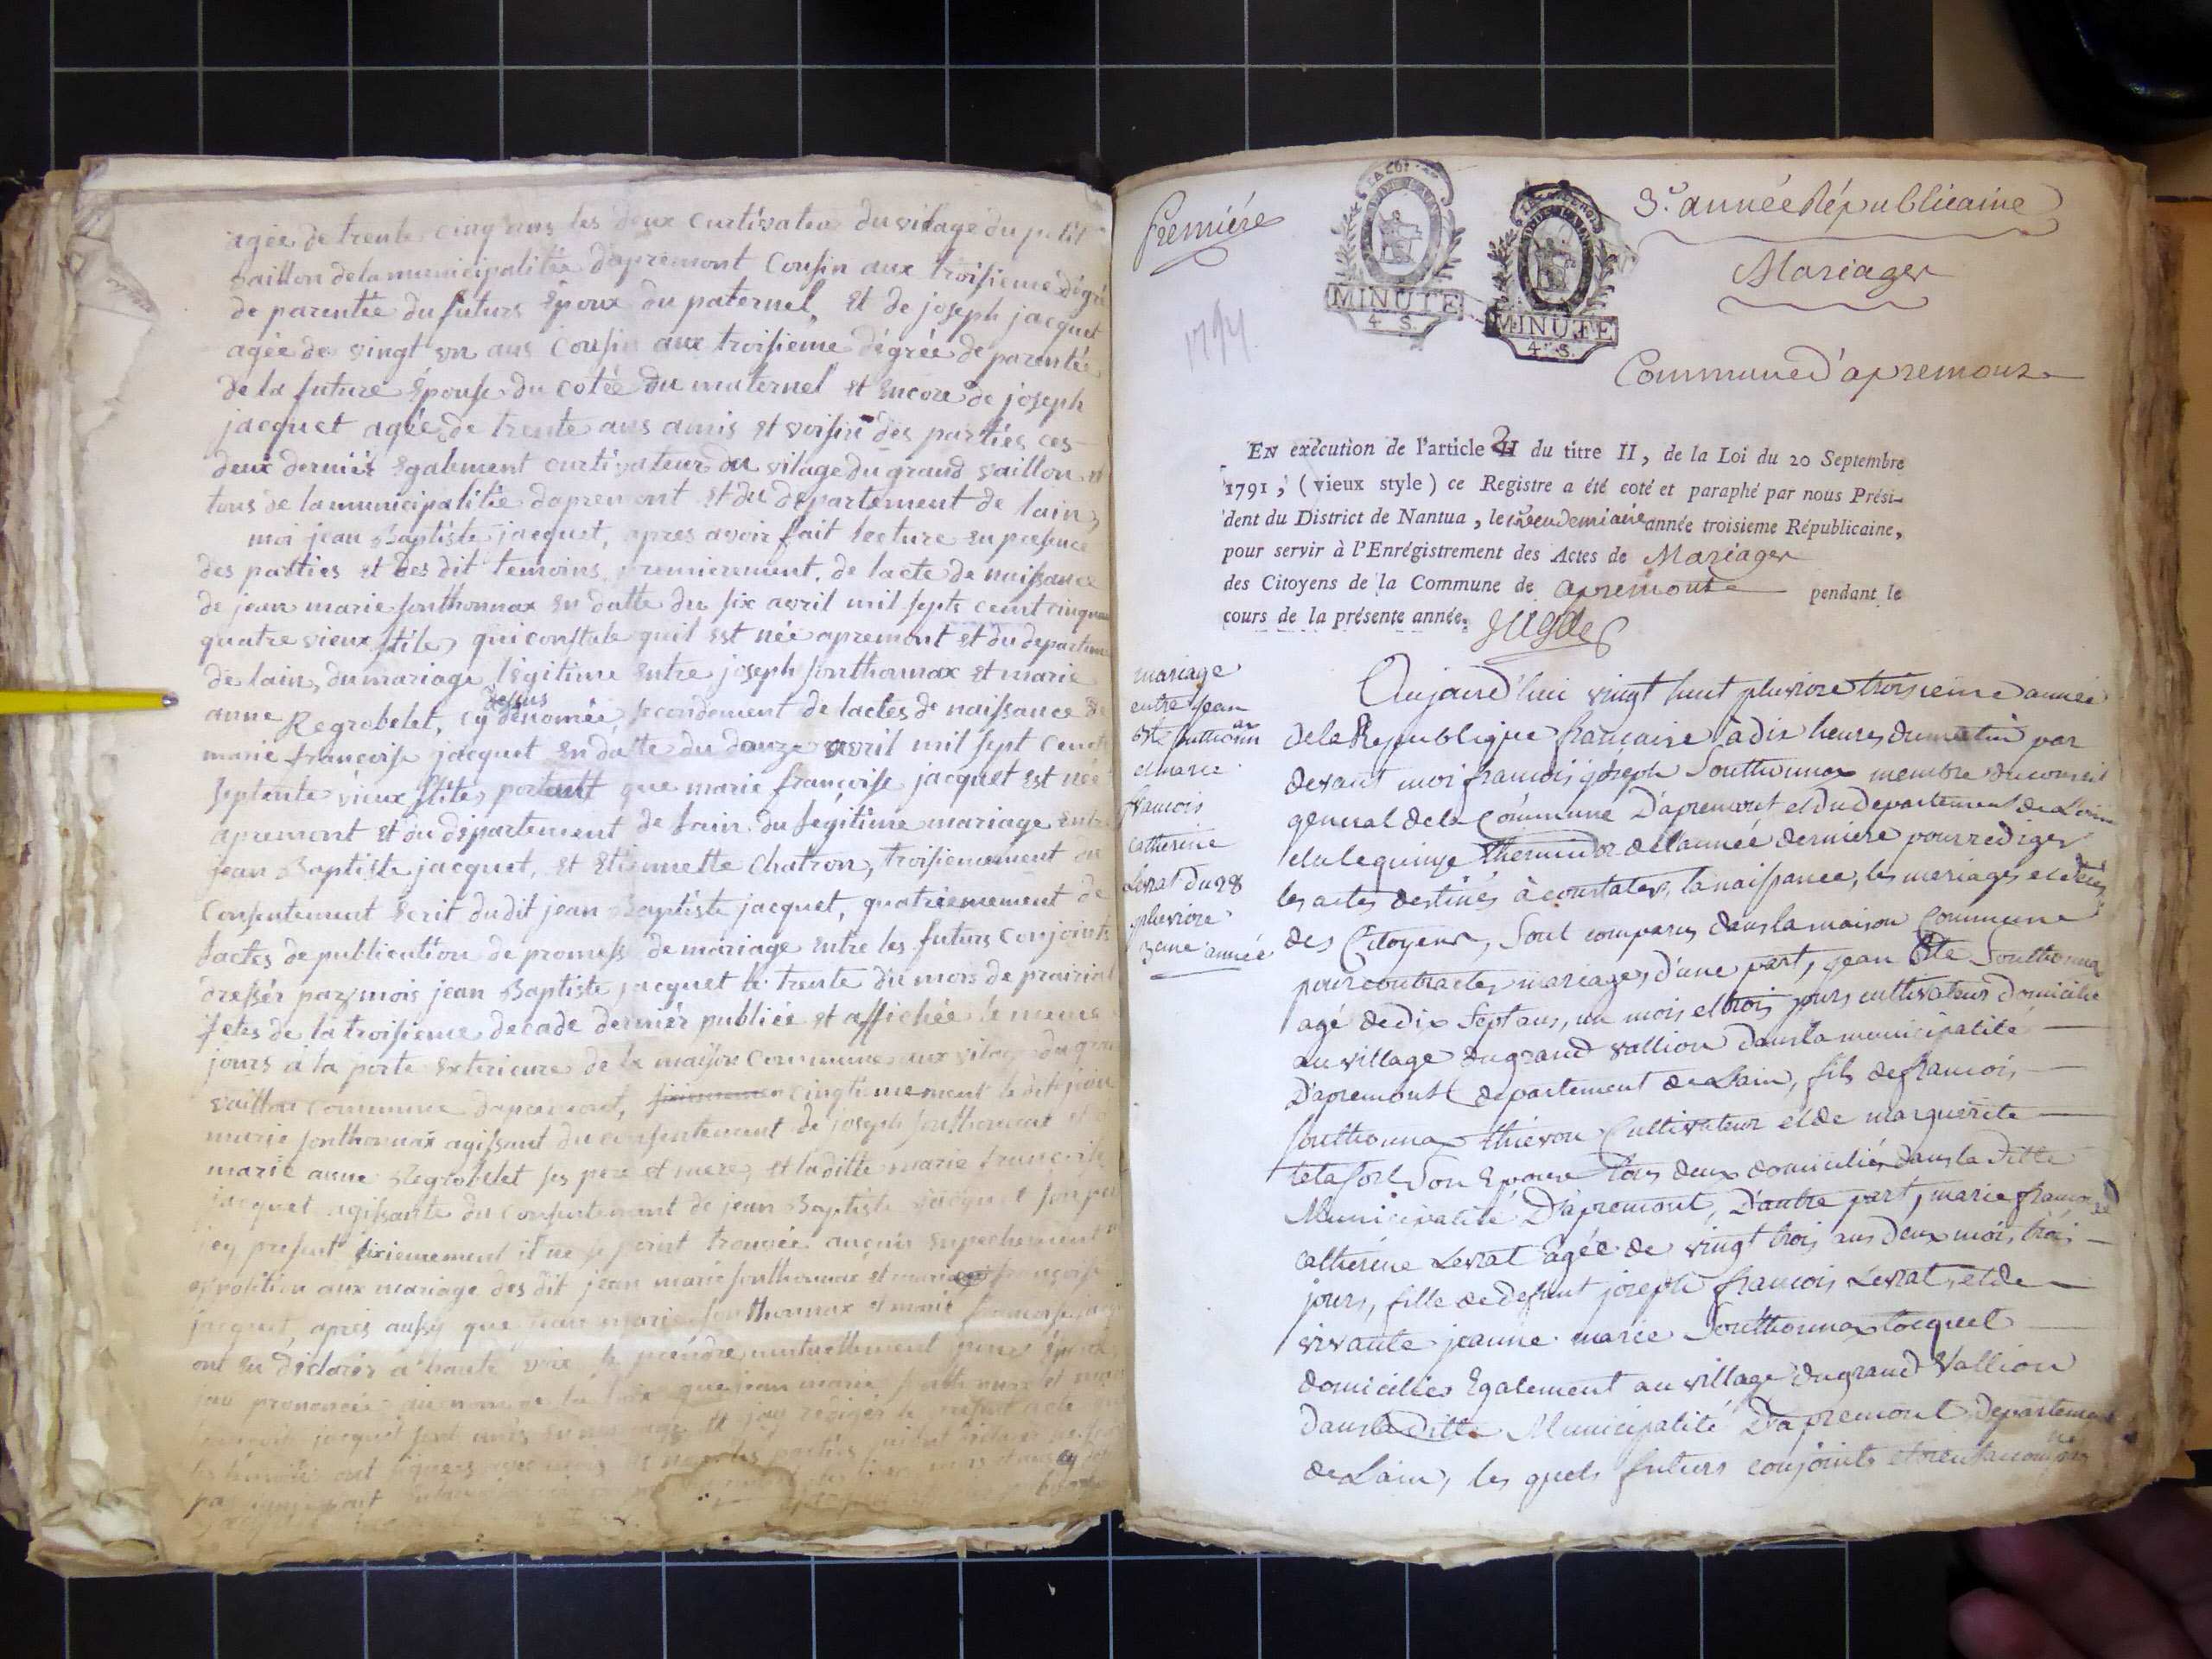 agée de trente cinq ans les deux curtivateur du vilage du petit
vaillon de la municipalitée dapremont Cousin aux troisieme dégré
de parentée du futurs Epoux du paternel, et de joseph jacquet
agée de vingt un ans Cousin aux troisieme dégrée de parentée
de la future Epouse du cotée du maternel et encore de joseph
jacquet agée de trente ans amis et voisin des parties ces
deux dernier Egalement curtivateur du vilage du grand vaillon
tous de la municipalitée dapremont et du departement de lain,
moi jean Baptiste jacquet, apres avoir fait lecture en presence
des parties et des dit temoins, premierement, de lacte de naissance
de jean marie sonthonnax en datte du six avril mil septs cent cinquan
quatre vieux stile, qui constate quil est née apremont et du departem
de lain, du mariage légitime entre joseph sonthonnax et marie
anne Regrobelet, cy dessus denomée, secondement de lactes de naissance de
marie francoise jacquet en datte du douze avril mil sept cent
septente vieux stile, portant que marie françoise jacquet est née
apremont et du departement de lain du légitime mariage entre
jean Baptiste jacquet, et Etiennette Chatron, troisiemement du
Consentement Ecrit dudit jean Baptiste jacquet, quatriemement de
lactes de publication de promesse de mariage entre les futurs Conjoints
dressér par mois jean Baptiste jacquet le trente du mois de prairial
fetes de la troisieme decade dernier publiée et affichée le meme
jours a la porte exterieure de la maison Commune aux vilage du gran
vaillon Commune dapremont, cinqtiemement ledit jean
marie sonthonnax agissant du consentement de joseph sonthonnax et
marie anne Regrobelet ses pere et mere, et la ditte marie francoise
jacquet agissante du Consentement de jean Baptiste jacquet son per
jcy present sixiemement il ne se point trouvée aucuns empechement n
oposition aux mariage des dit jean marie sonthonnax et marie françoise
jacquet, apres aussy que jean marie sonthonnax et marie francoise jacq
ont eu déclarér a haute voix se prendre mutuellement pour Epoux
jay prononcée au nom de la loix que jean marie sonthonnax et mari
francoise jacquet sont unis en mariage et jay rédigér le present acte
Premiére
1794
MINUTE
4. S.
MINUTE
4. S.
3.e année Républicaine
Mariages
Commune d'apremont
EN exécution de l'article 2 du titre II, de la Loi du 20 Septembre
1791, (vieux style) ce Registre a été coté et paraphé par nous Prési-
dent du District de Nantua, le vendemiaire année troisieme Républicaine,
pour servir à l'Enrégistrement des Actes de Mariages
des Citoyens de la Commune de apremont pendant le
cours de la présente année.
mariage
entre jean
Bte sonthonnax
et marie
francois
catherine
Levrat du 28
pluviose
3eme année
Aujourd'hui vingt huit pluviose troisieme année
de la Republique francaise à dix heures du matin par
devant moi francois joseph Sonthonnax membre du conseil
general de la Commune D'apremont et du departement de L'ain
elu le quinze thermidor de l'année derniere pour rediger
les actes destinés à constater, la naissance, les mariages et deces
des Citoyens, sont comparus dans la maison Commune
pour contracter mariage, d'une part, jean Bte Sonthonnax
agé de dix sept ans, un mois et trois jours, cultivateur domicilié
au village du grand vallion dans la municipalité
D'apremont departement de Lain, fils de francois
sonthonnax thievon Cultivateur et de marguerite
son Epouse tous deux domiciliés dans la ditte
Municipalité D'apremont, D'autre part, marie francoise
catherine Levrat agée de vingt trois ans deux mois, trois
jours, fille de defunt joseph francois Levrat, et de
vivante jeanne marie Sonthonnax tocquet
domiciliés Egalement au village du grand Vallion
dans la ditte Municipalité D'apremont, departement
de Lain, les quels futurs conjoints